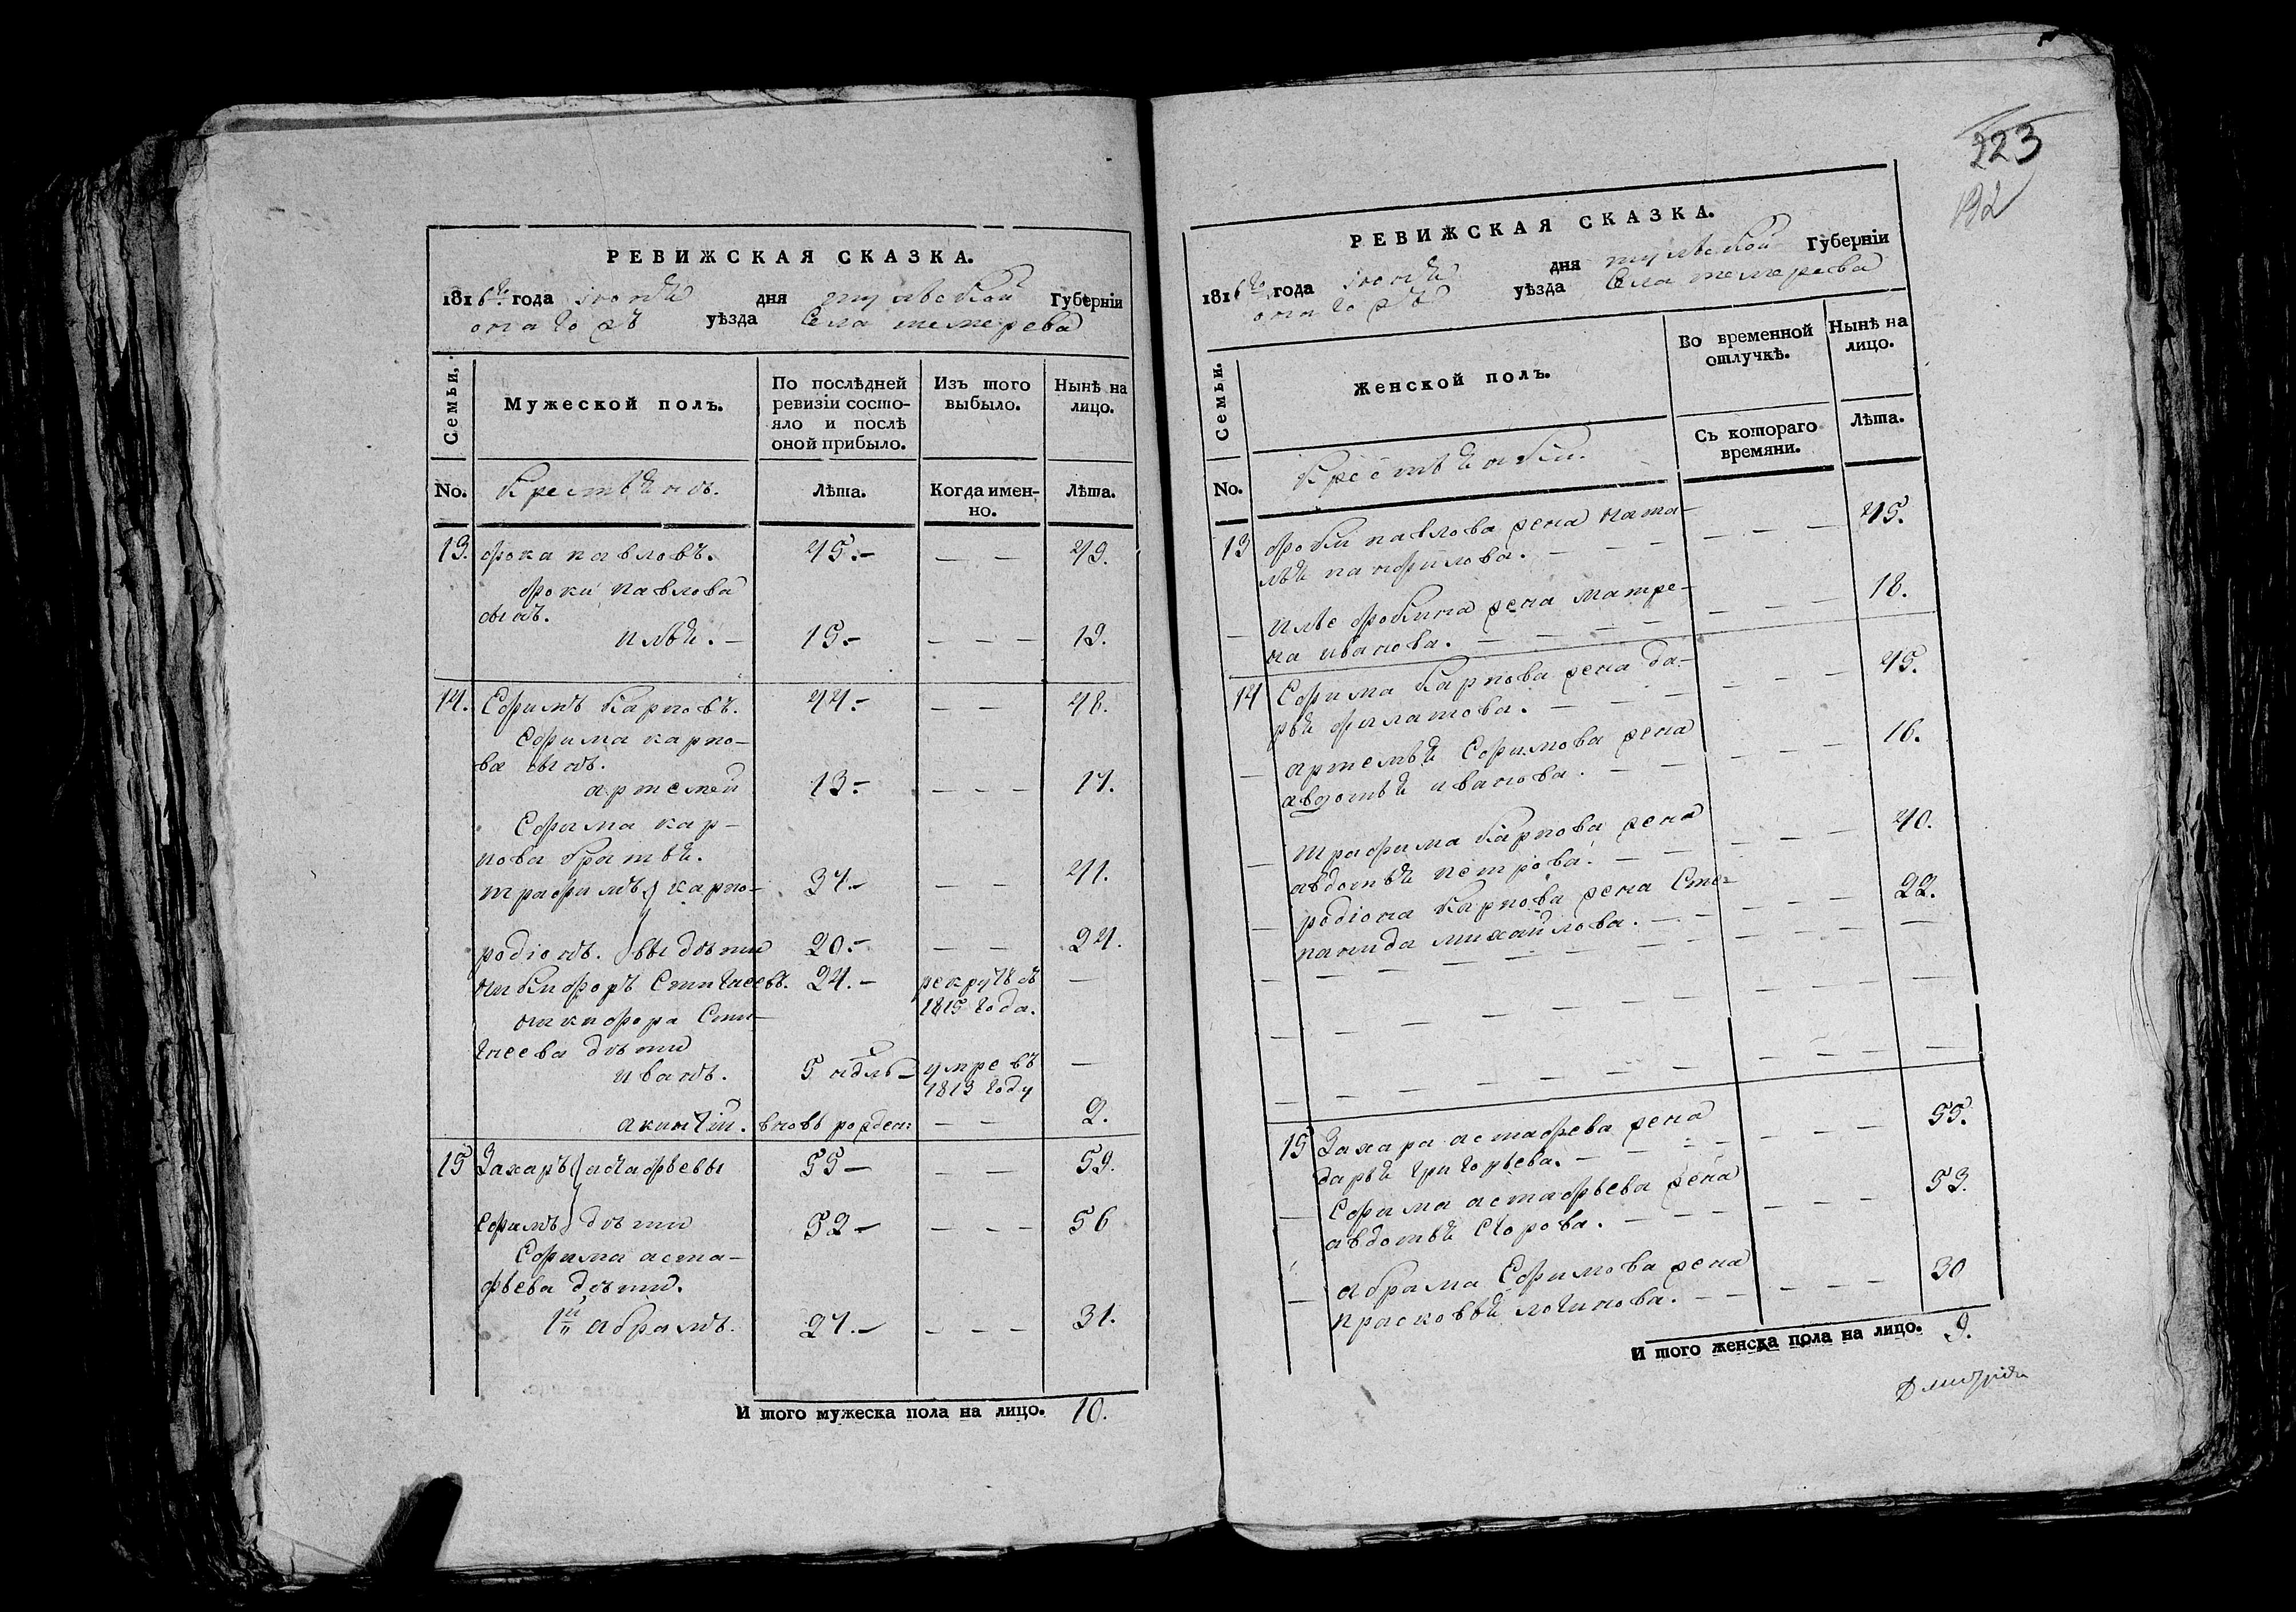 РЕВИЖСКАЯ СКАЗКА.
1816го года июня дня тульской Губернiи
уѣзда Села темерева
Семьи.
Мужеской полъ.
По послѣдней ревизiи состояло и послѣ оной прибыло.
Изъ того выбыло.
Нынѣ на лицо.
No.
Крестьянъ.
Лѣта.
Когда именно.
Лѣта.
13. фока павловъ. 45.– — — 49.
фоки павлова
сынъ.
илья. – 15.– — — — 19.
14. Ефимъ Карповъ. 44.– — — 48.
Ефима карпо–
ва сынъ.
артемей 13.– — — — 17.
Ефима кар–
пова братья.
трафимъ карпо– 37.– — — 41.
родiонъ. вы дѣти 20.– — — 24.
никифоръ Евтигнеевъ. 24.– рекрутъ въ —
1815 года.
никифора Евти–
гнеева дѣти
иванъ. 5 ндль– умре въ —
1813 году
акинѳiй. вновь рожден: — — 2.
15 Захаръ астафьевы 55 – — — 59.
Ефимъ дѣти 52 – — — — 56
Ефима аста–
фьева дѣти.
1й абрамъ. 27.– — — — 31.
И того мужеска пола на лицо. 10.
223
192
РЕВИЖСКАЯ СКАЗКА.
1816го года июня дня тульской Губернiи
уѣзда Села темерева
Семьи.
Женской полъ.
Во временной отлучкѣ.
Нынѣ на лицо.
Съ котораго времяни.
Лѣта.
No.
Крестьянки.
13 фоки павлова жена ната–
лья панфилова. — — — — — — 45.
— илье фокина жена матре–
на иванова. — — — — — — — 18.
14 Ефима Карпова жена да–
рья филатова. — — — — — 45.
— артемья Ефимова жена
авдотья иванова. — — — — — 16.
— трафима Карпова жена
авдотья петрова. — — — — — 40.
— родiона Карпова жена Сте–
панида михайлова. — — — — — 22.
15 Захара астафьева жена
дарья григорьева. — — — — — — 55.
— Ефима астафьева жена
авдотья Егорова. — — — — — — 53.
— абрама Ефимова жена
прасковья логинова. — — — — — 30
И того женска пола на лицо. 9.
Дмитрiй